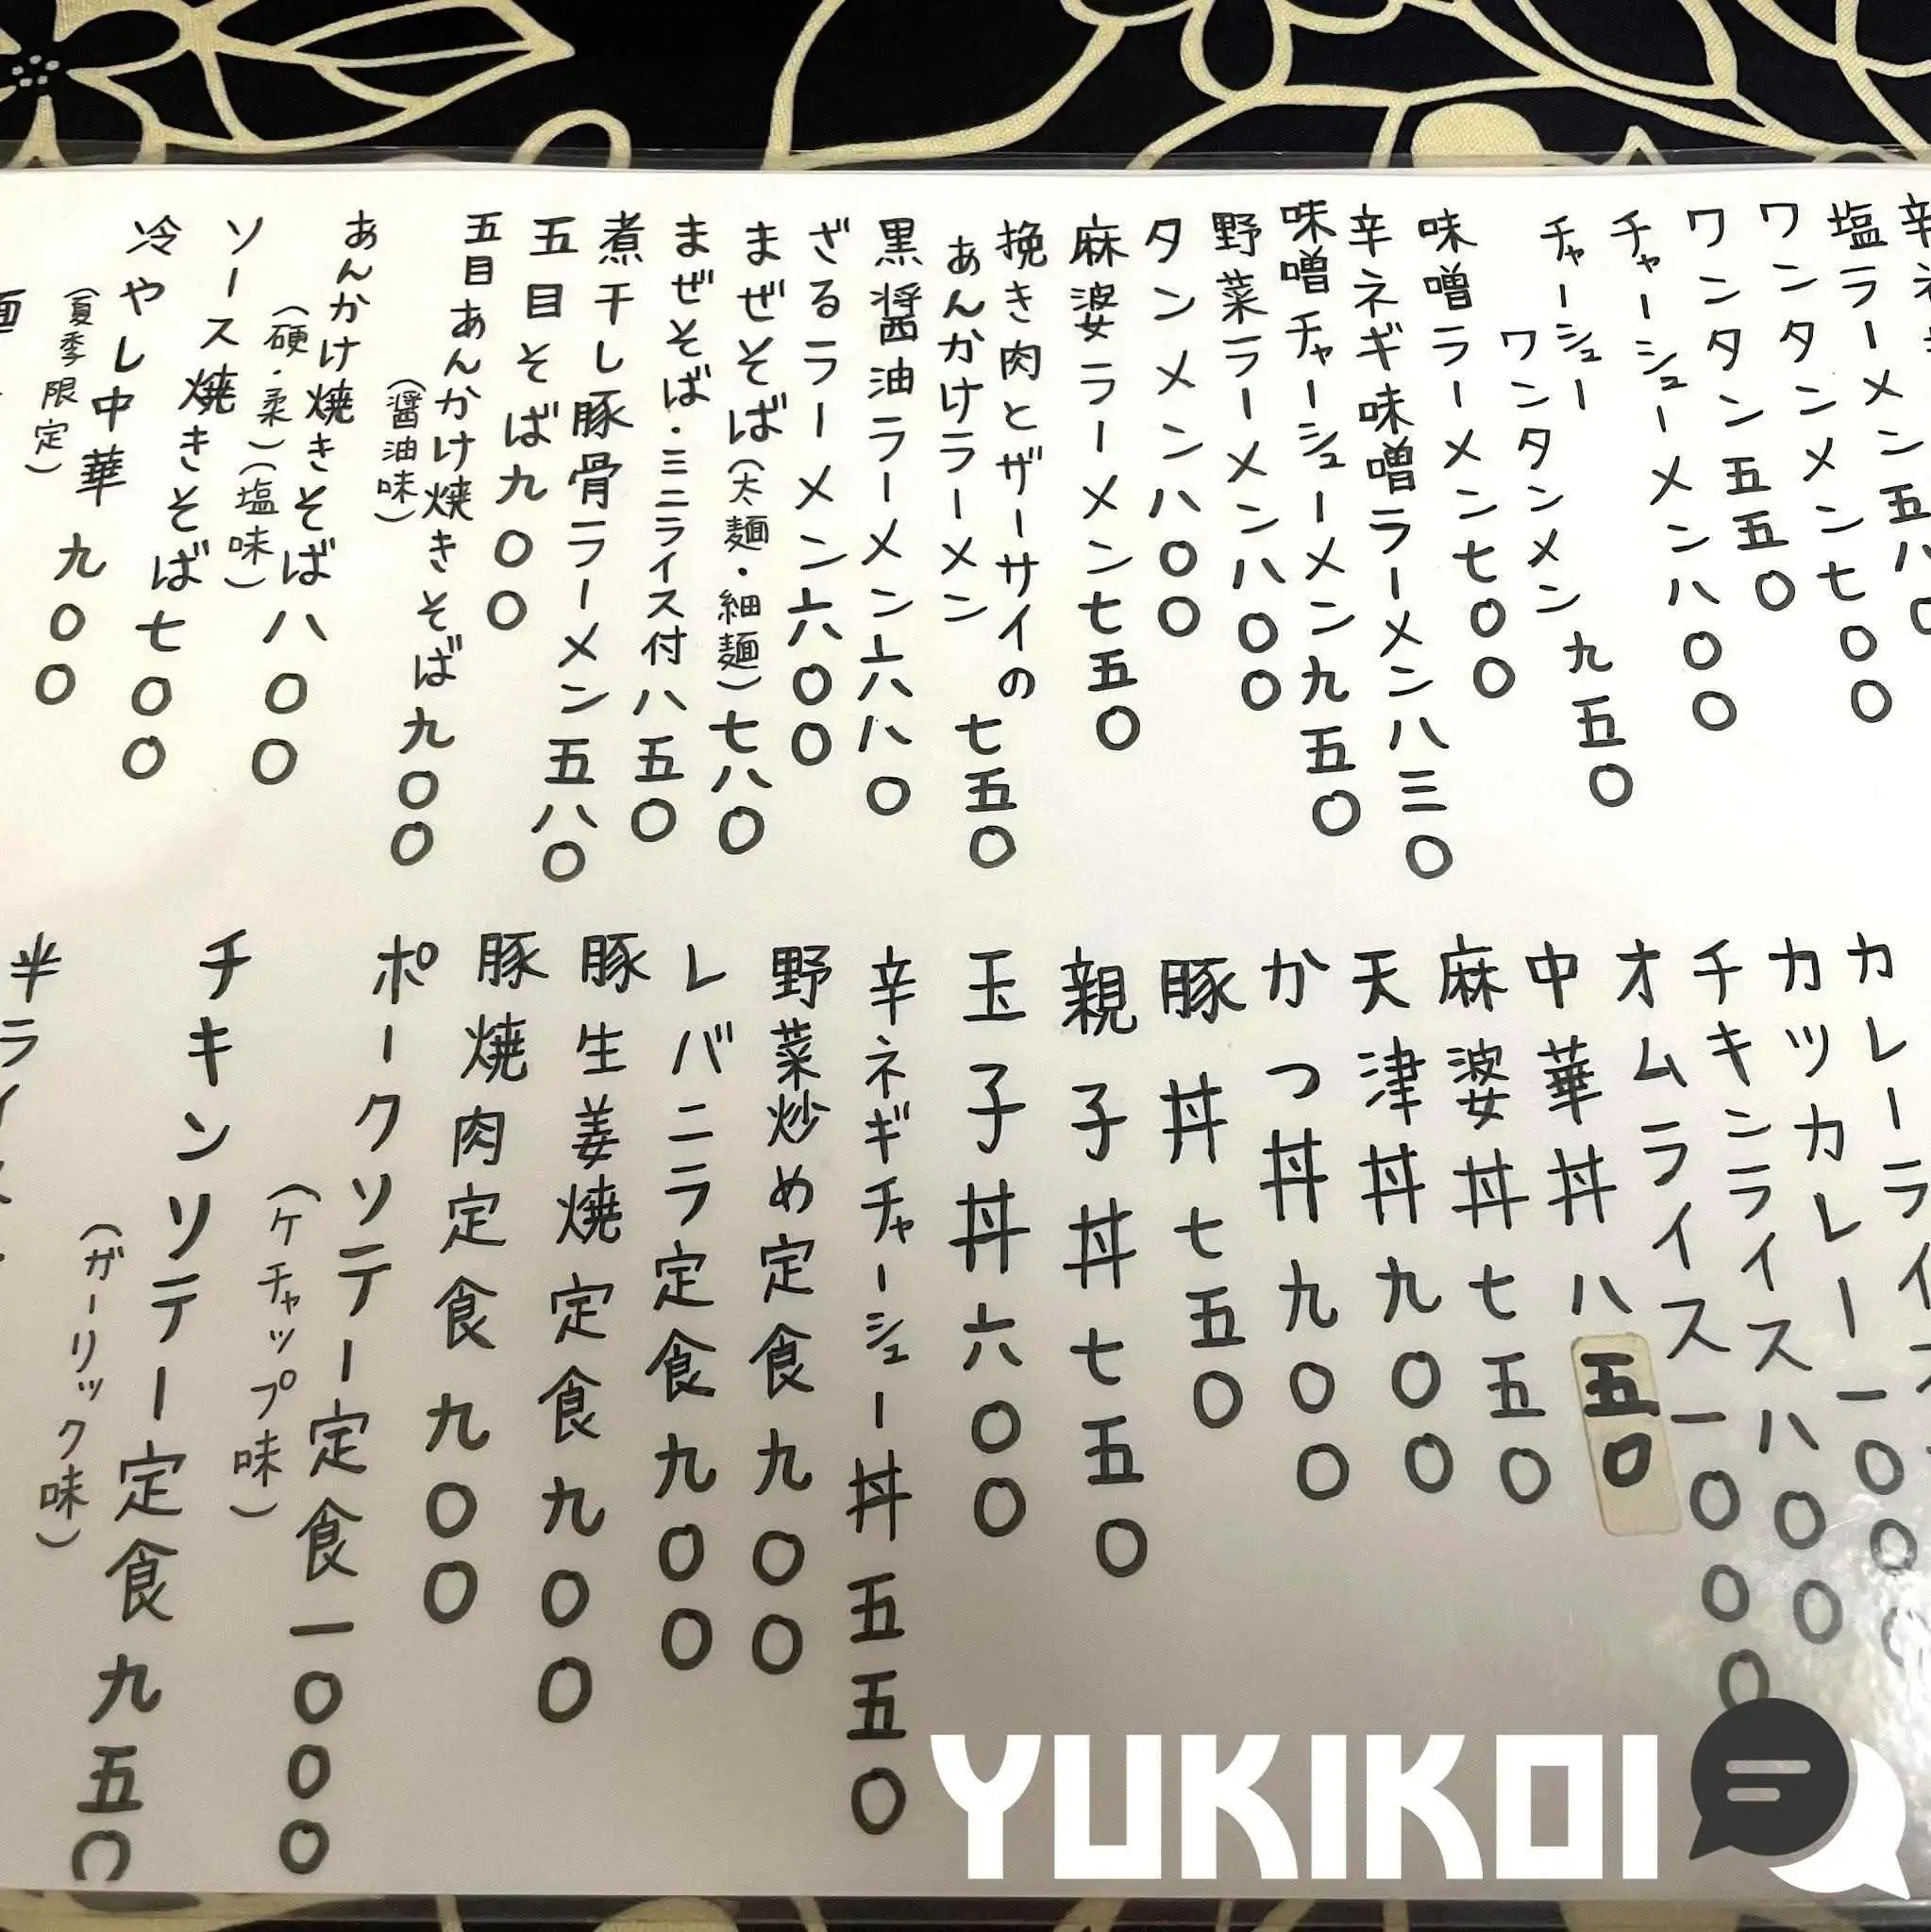 塩ラーメン五八〇
ワンタンメン七〇〇
ワンタン五五〇
チャーシューメン八〇〇
チャーシュー
ワンタンメン 九五〇
味噌ラーメン七〇〇
辛ネギ味噌ラーメン八三〇
味噌チャーシューメン九五〇
野菜ラーメン八〇〇
タンメン八〇〇
麻婆ラーメン七五〇
挽き肉とザーサイの
あんかけラーメン 七五〇
黒醤油ラーメン六八〇
ざるラーメン六〇〇
まぜそば(太麺・細麺)七八〇
まぜそば・ミニライス付八五〇
煮干し豚骨ラーメン五八〇
五目そば九〇〇
五目あんかけ焼きそば九〇〇
(醤油味)
あんかけ焼きそば八〇〇
(硬・柔)(塩味)
ソース焼きそば七〇〇
冷やし中華 九〇〇
(夏季限定)
カツカレー一〇〇
チキンライス八〇〇
オムライス一〇〇〇
中華丼 八五〇
麻婆丼七五〇
天津丼九〇〇
かつ丼九〇〇
豚丼七五〇
親子丼七五〇
玉子丼六〇〇
辛ネギチャーシュー丼五五〇
野菜炒め定食九〇〇
レバニラ定食九〇〇
豚生姜焼定食九〇〇
豚焼肉定食 九〇〇
ポークソテー定食一〇〇〇
(ケチャップ味)
チキンソテー定食九五〇
(ガーリック味)
半ライス
YUKIKOI